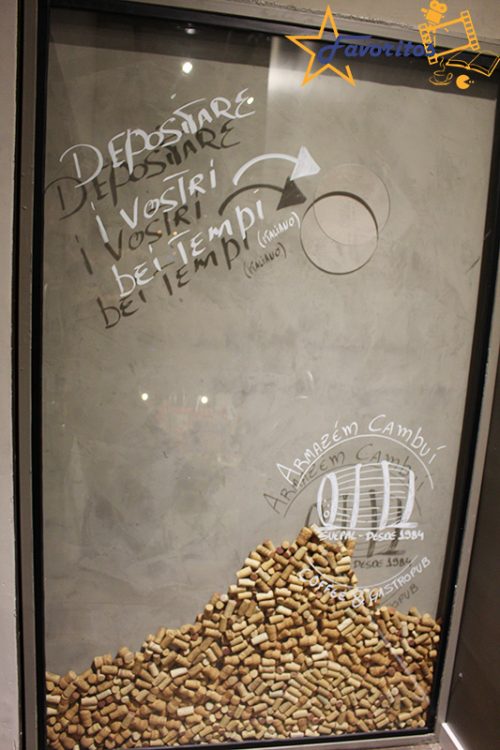 Favoritos
DEPOSITARE
i VOSTRi
bei TEMPi
(ITALIANO)
ARMAZÉM CAMBUÍ
EUEPAL - DESDE 1984
COFFEE & GASTROPUB